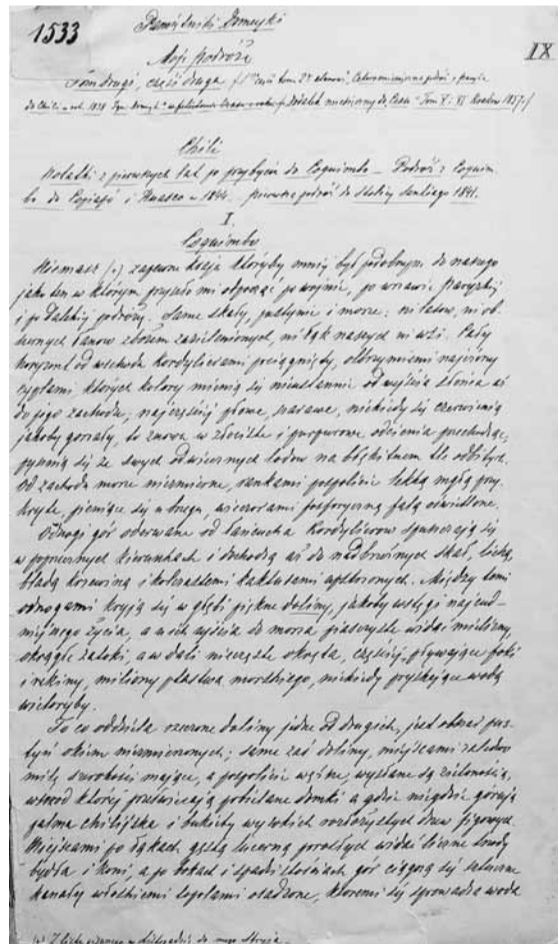 1533
IX
Pamiętniki Domeyki
Moje Podróże
Tom drugi, część druga
do Chili w rok. 1838 Kraków 1857
Chili
Notatki z pierwszych lat po przybyciu do Coquimbo – Podróż z Coquim-
bo do Copiapó i Huasco w 1840. pierwsza podróż do stolicy Santiago 1841.
I.
Coquimbo
Niemasz (*) zapewne kraju któryby mniej był podobnym do naszego
jako ten w którym przyszło mi odpocząć po wojnie, po wrzawie Paryzkiej
i po dalekiej podróży. Same skały, pustynie i morze: ni lasów, ni ob-
szernych łanów zbożem zazielenionych, ni łąk naszych ni wsi. Cały
horyzont od wschodu Kordylierami przeciągnięty, olbrzymiemi najeżony
cyplami których kolory mienią się nieustannie od wyjścia słońca aż
do jego zachodu; najczęściej płowe, szarawe, niekiedy się czerwienią
jakoby gorzały, to znowu w złociste i purpurowe odcienia przechodząc,
pysznią się ze swych odwiecznych lodów na błękitnem tle odbitych.
Od zachodu morze niezmierne, rankami pospolicie lekką mgłą przy-
kryte, pieniące się u brzegu, wieczorami fosforyczną falą oświetlone.
Odnogi gór oderwane od łańcucha Kordylierów spuszczają się
w poprzecznych kierunkach i dochodzą aż do nadbrzeżnych skał, lichą,
bladą krzewiną i kolczastemi kaktusami upstrzonych. Między temi
odnogami kryją się w głębi piękne doliny, jakoby wstęgi najcud-
niejszego życia, a u ich ujścia do morza piaszczyste widać mielizny,
okrągłe zatoki, a w dali nieczęste okręta, częściej pływające foki
i rekiny, miliony ptastwa morskiego, niekiedy pryskające wodą
wieloryby.
To co oddziela rzeczone doliny jedne od drugich, jest obraz pus-
tyń okiem niezmierzonych; same zaś doliny, miejscami zaledwo
milę szerokości mające, a pospolicie węższe, wysłane są zielonością,
wśród której przeświecają pobielane domki a gdzie niegdzie górują
palma chilijska i bukiety wysokich rozłożystych drzew figowych.
Miejscami po łąkach gęstą lucerną porosłych widać liczne trzody
bydła i koni, a po bokach i spadzistościach gór ciągną się sztuczne
kanały włoskiemi topolami osadzone, któremi się sprowadza woda
(*) Z listu pisanego do mego stryja.